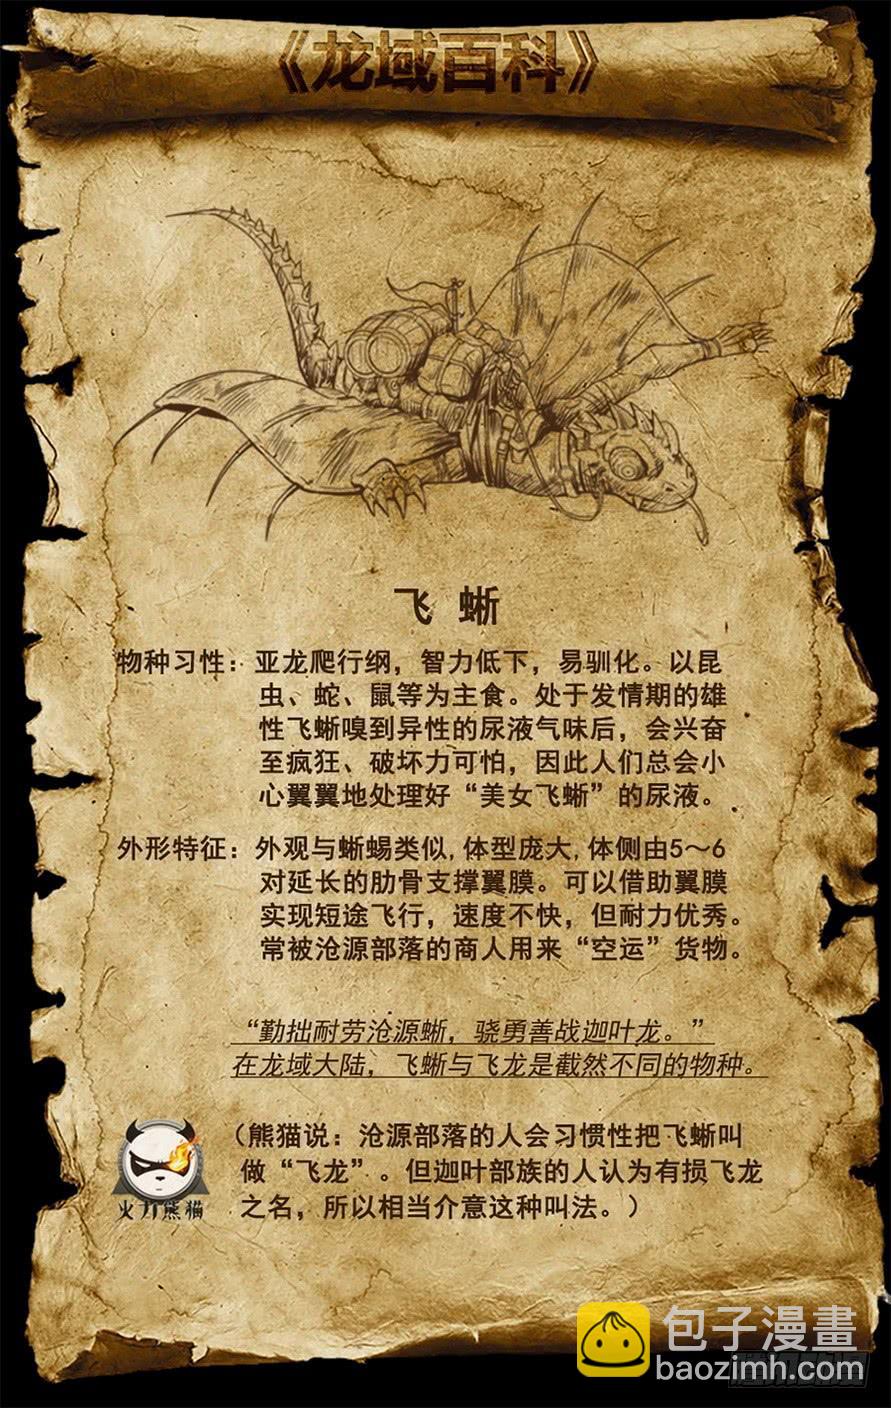 《龙域百科》
飞蜥
物种习性：亚龙爬行纲，智力低下，易驯化。以昆
虫、蛇、鼠等为主食。处于发情期的雄
性飞蜥嗅到异性的尿液气味后，会兴奋
至疯狂、破坏力可怕，因此人们总会小
心翼翼地处理好“美女飞蜥”的尿液。
外形特征：外观与蜥蜴类似,体型庞大,体侧由5～6
对延长的肋骨支撑翼膜。可以借助翼膜
实现短途飞行，速度不快，但耐力优秀。
常被沧源部落的商人用来“空运”货物。
“勤拙耐劳沧源蜥，骁勇善战迦叶龙。”
在龙域大陆，飞蜥与飞龙是截然不同的物种。
（熊猫说：沧源部落的人会习惯性把飞蜥叫
做“飞龙”。但迦叶部族的人认为有损飞龙
之名，所以相当介意这种叫法。）
火力熊猫
包子漫畫
baozimh.com